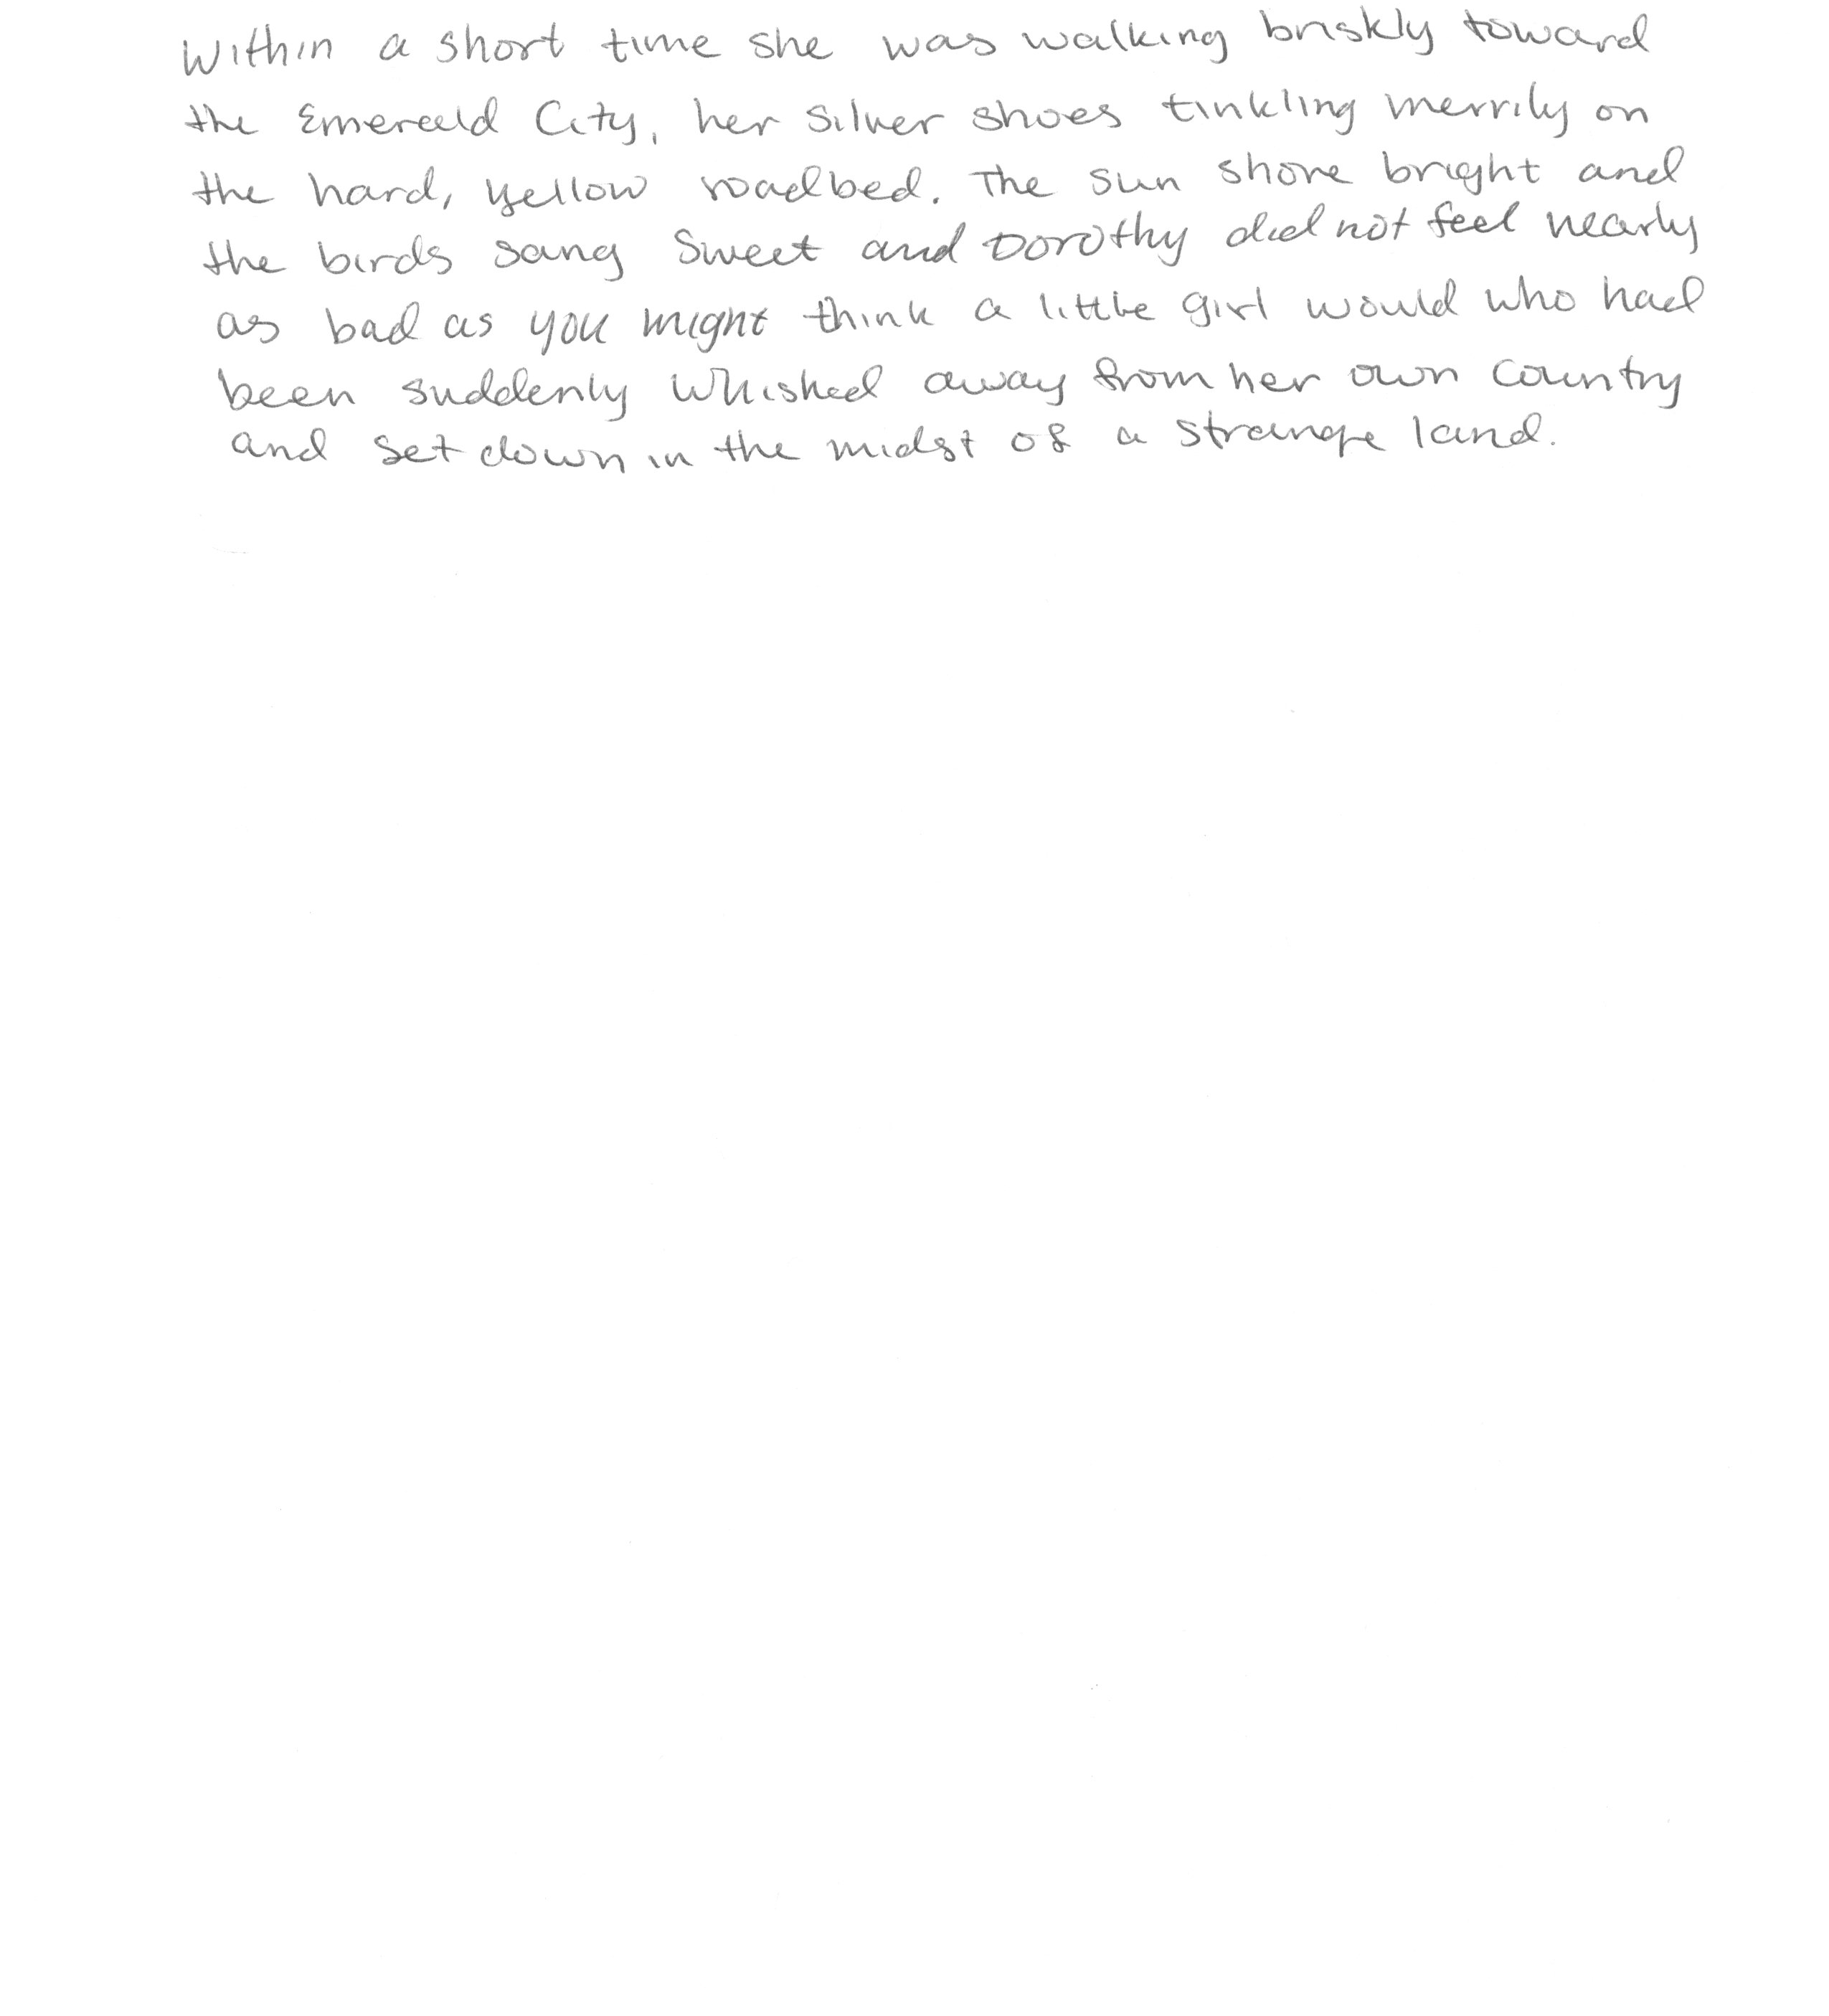 Within a short time she was walking briskly toward
the Emerald City, her Silver shoes tinkling merrily on
the hard, yellow roadbed. The sun shone bright and
the birds sang Sweet and Dorothy did not feel nearly
as bad as you might think a little girl would who had
been suddenly whisked away from her own country
and set down in the midst of a strange land.